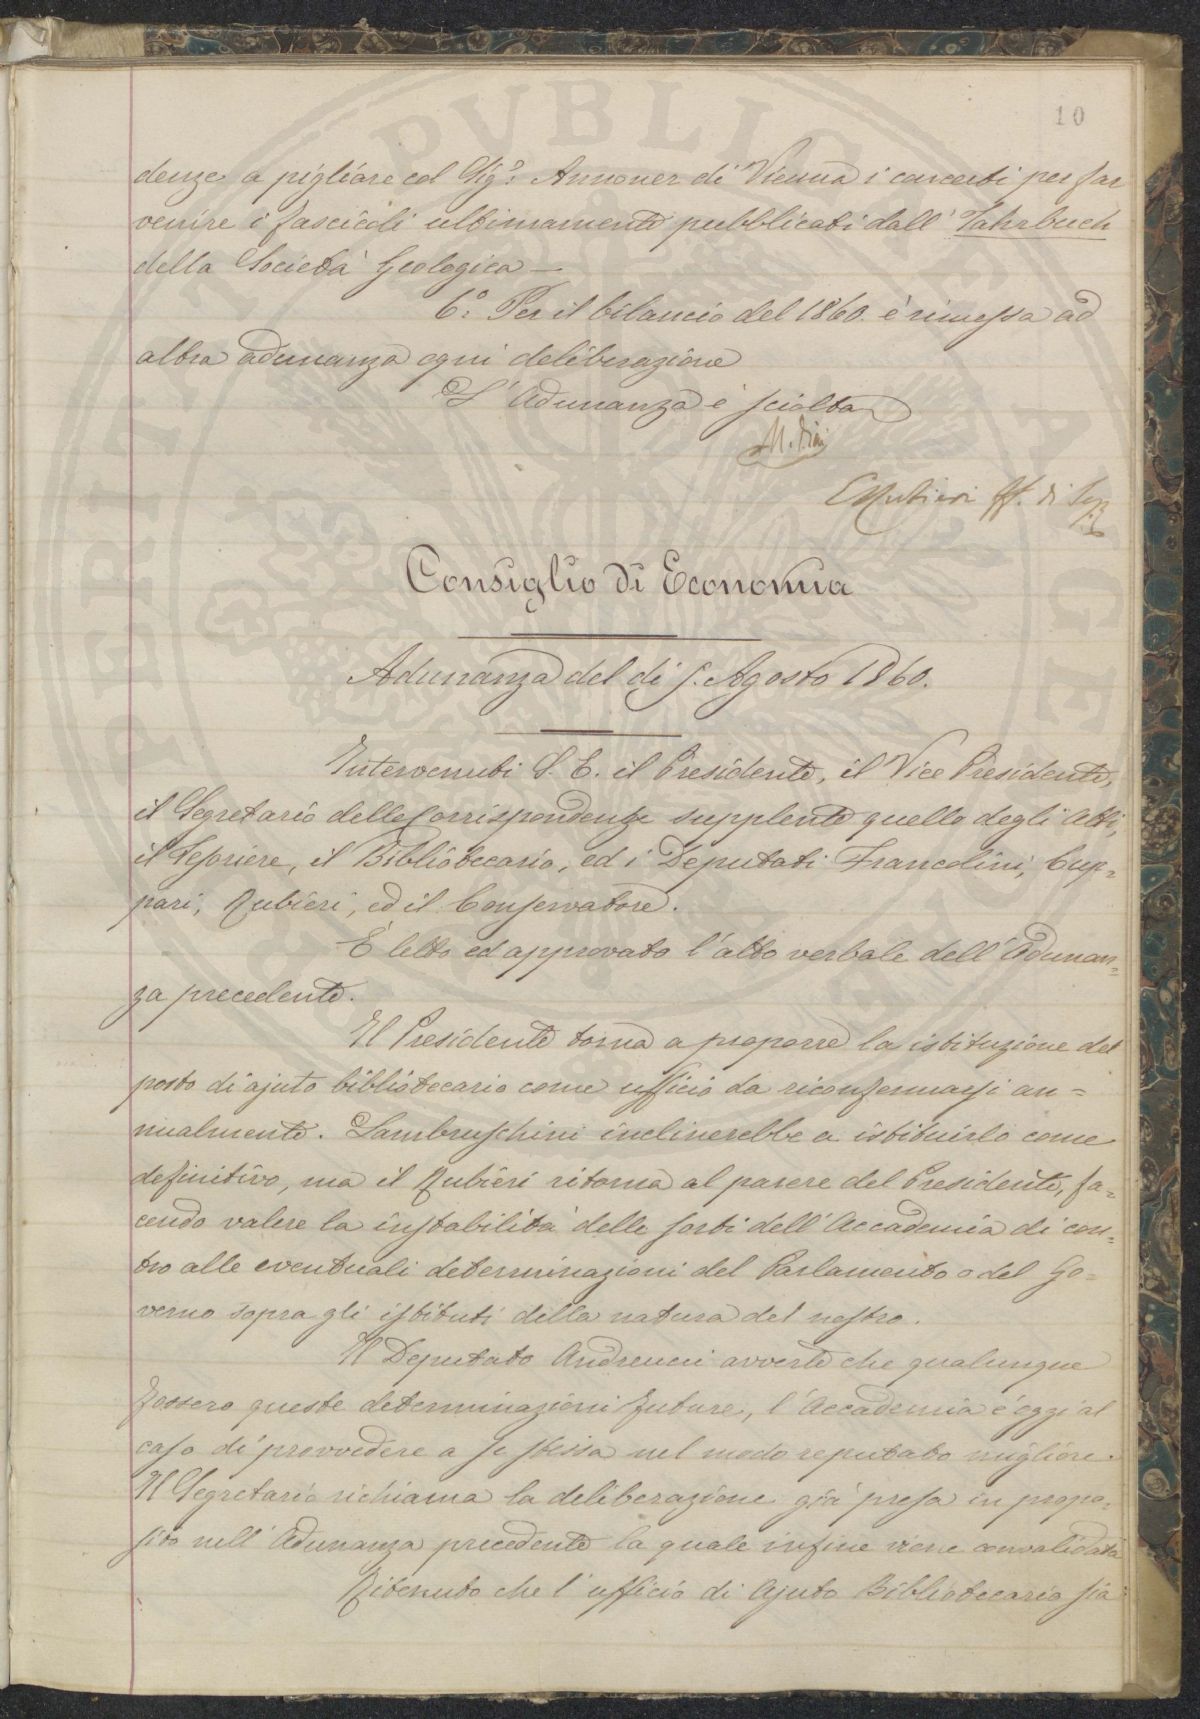 10
denze a pigliare col Sig.r Annoner di Vienna i concerti per far
venire i fascicoli ultimamente pubblicati dall' Jahrbuch
della Società Geologica —
6.° Per il bilancio del 1860. è rimessa ad
altra adunanza ogni deliberazione
L' Adunanza è sciolta
ERubieri ff. di Seg.
Consiglio di Economia
Adunanza del dì 5. Agosto 1860.
Intervenuti S. E. il Presidente, il Vice Presidente,
il Segretario delle Corrispondenze supplente quello degli Atti,
il Tesoriere, il Bibliotecario, ed i Deputati Francolini, Cup=
pari, Rubieri, ed il Conservatore.
È letto ed approvato l'atto verbale dell'Adunan=
za precedente.
Il Presidente torna a proporre la istituzione del
posto di ajuto bibliotecario come ufficio da riconfermarsi an=
nualmente. Lambruschini inclinerebbe a istituirlo come
definitivo, ma il Rubieri ritorna al parere del Presidente, fa=
cendo valere la instabilità delle sorti dell'Accademia di con=
tro alle eventuali determinazioni del Parlamento o del Go=
verno sopra gli istituti della natura del nostro.
Il Deputato Andreucci avverte che qualunque
fossero queste determinazioni future, l'Accademia è oggi al
caso di provvedere a se stessa nel modo reputato migliore.
Il Segretario richiama la deliberazione già presa in propo=
sito nell'Adunanza precedente la quale infine viene convalidata
Ritenuto che l'ufficio di Ajuto Bibliotecario sia
PVBLICAE